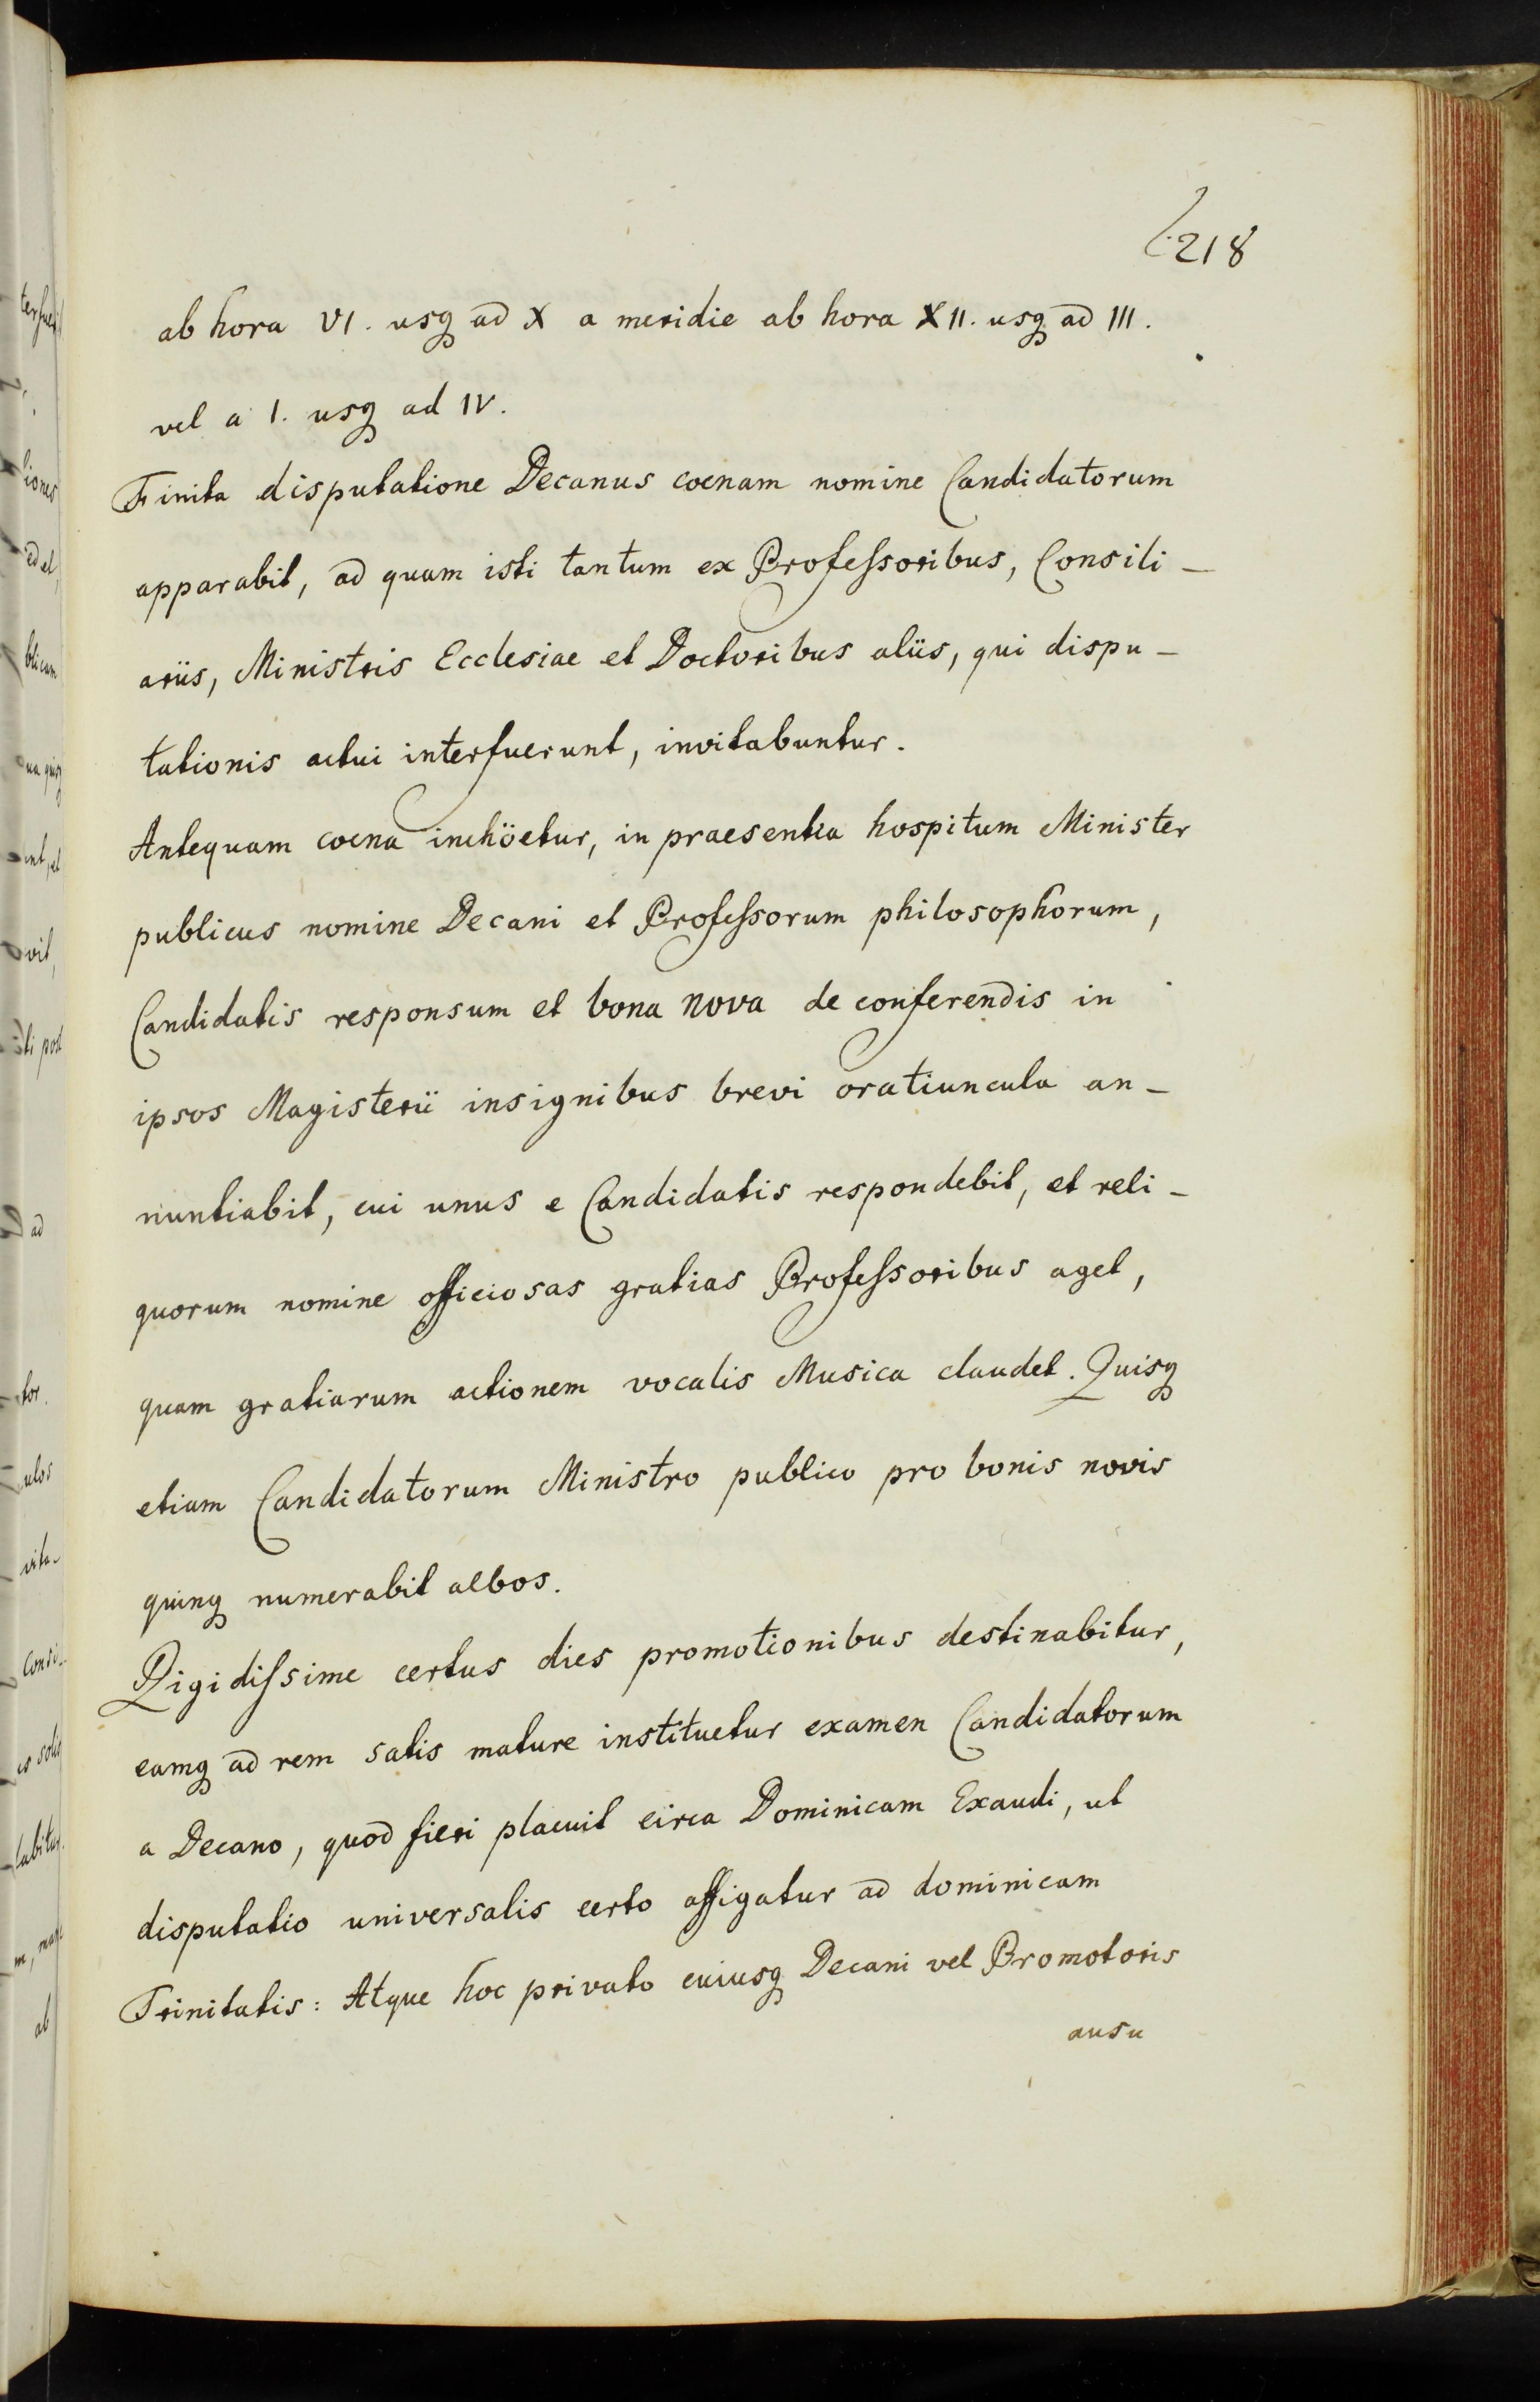 218
ab hora VI. usq ad X a meridie ab hora XII. usq ad III.
vel a I. usq ad IV.
Finita disputatione Decanus coenam nomine Candidatorum
apparabit, ad quam isti tantum ex Professoribus, Consili-
ariis, Ministris Ecclesiae et Doctoribus aliis, qui dispu-
tationis actui interfuerunt, invitabuntur.
Antequam coena inchöetur, in praesentia hospitum Minister
publicus nomine Decani et Professorum philosophorum,
Candidatis responsum et bona nova de conferendis in
ipsos Magisterii insignibus brevi oratiuncula an-
nuntiabit, cui unus e Candidatis respondebit, et reli-
quorum nomine officiosas gratias Professoribus aget,
quam gratiarum actionem vocalis Musica claudet. Quisq
etiam Candidatorum Ministro publico pro bonis novis
quinq numerabit albos.
Rigidissime certus dies promotionibus destinabitur,
eamq ad rem satis mature instituetur examen Candidatorum
a Decano, quod fieri placuit circa Dominicam Exaudi, ut
disputatio universalis certo affigatur ad dominicam
Trinitatis: Atque hoc privato cuiusq Decani vel Promotoris
ausu